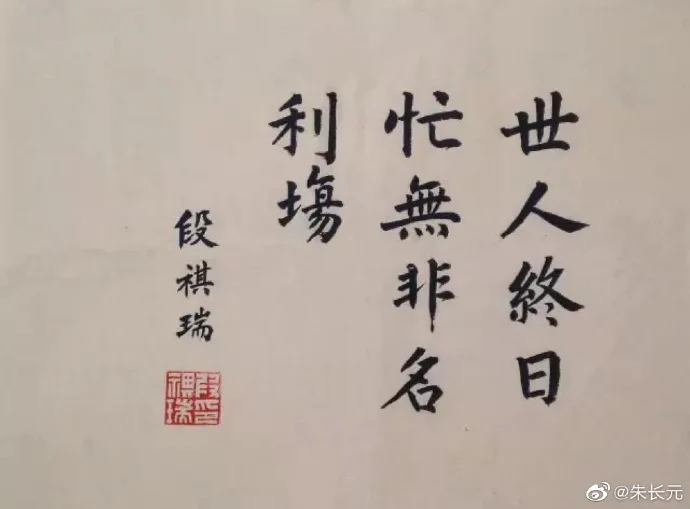 世人終日
忙無非名
利塲
段祺瑞
段祺瑞印
@朱长元